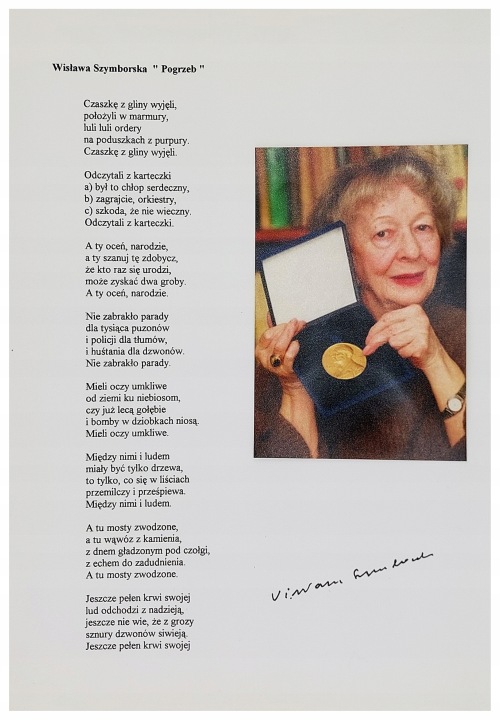 Wisława Szymborska " Pogrzeb "
Czaszkę z gliny wyjęli,
położyli w marmury,
luli luli ordery
na poduszkach z purpury.
Czaszkę z gliny wyjęli.
Odczytali z karteczki
a) był to chłop serdeczny,
b) zagrajcie, orkiestry,
c) szkoda, że nie wieczny.
Odczytali z karteczki.
A ty oceń, narodzie,
a ty szanuj tę zdobycz,
że kto raz się urodzi,
może zyskać dwa groby.
A ty oceń, narodzie.
Nie zabrakło parady
dla tysiąca puzonów
i policji dla tłumów,
i huśtania dla dzwonów.
Nie zabrakło parady.
Mieli oczy umkliwe
od ziemi ku niebiosom,
czy już lecą gołębie
i bomby w dziobkach niosą.
Mieli oczy umkliwe.
Między nimi i ludem
miały być tylko drzewa,
to tylko, co się w liściach
przemilczy i prześpiewa.
Między nimi i ludem.
A tu mosty zwodzone,
a tu wąwóz z kamienia,
z dnem gładzonym pod czołgi,
z echem do zadudnienia.
A tu mosty zwodzone.
Jeszcze pełen krwi swojej
lud odchodzi z nadzieją,
jeszcze nie wie, że z grozy
sznury dzwonów siwieją.
Jeszcze pełen krwi swojej